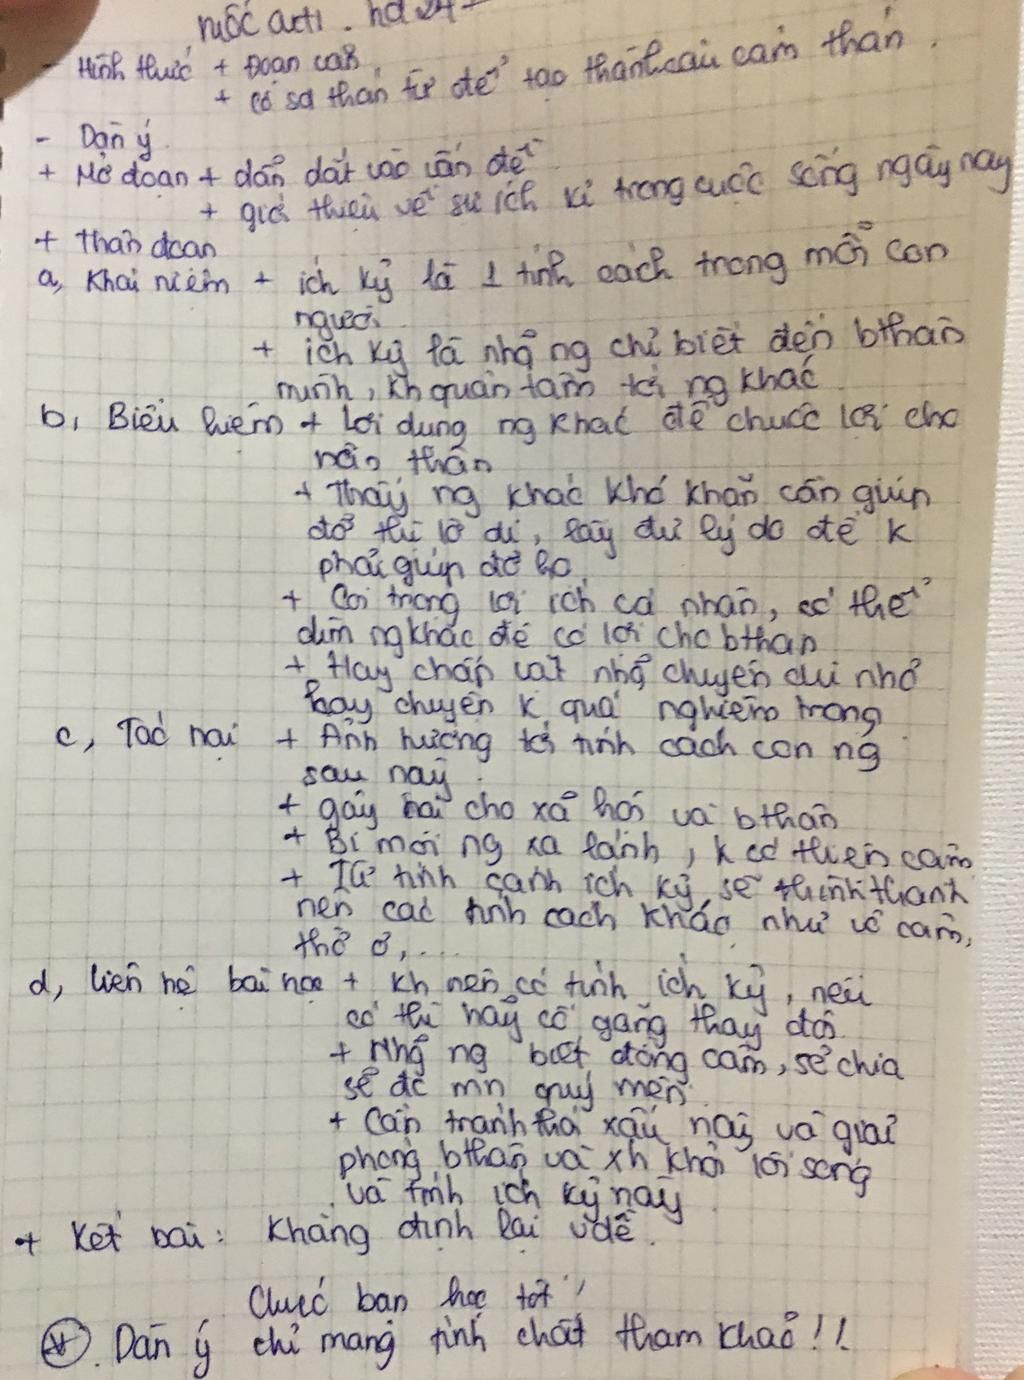 - Hình thức + Đoạn văn
+ có sd thán từ để tạo thành câu cảm thán.
- Dàn ý
+ Mở đoạn + dẫn dắt vào vấn đề
+ giới thiệu về sự ích kỉ trong cuộc sống ngày nay
+ Thân đoạn
a, Khái niệm + ích kỷ là 1 tính cách trong mỗi con
người
+ ích kỷ là nhg ng chỉ biết đến bthân
mình, kh quan tâm tới ng khác
b, Biểu hiện + Lợi dụng ng khác để chuộc lợi cho
bản thân
+ Thấy ng khác khó khăn cần giúp
đỡ thì lờ đi, lấy đủ lý do để k
phải giúp đỡ họ
+ Coi trọng lợi ích cá nhân, có thể
dìm ng khác để có lợi cho bthân
+ Hay chấp vặt nhg chuyện dù nhỏ
hay chuyện k quá nghiêm trọng
c, Tác hại + Ảnh hưởng tới tính cách con ng
sau này.
+ gây hại cho xã hội và bthân
+ Bị mọi ng xa lánh, k có thiện cảm
+ Từ tính cách ích kỷ sẽ hình thành
nên các tính cách khác như vô cảm,
thờ ơ,...
d, Liên hệ bài học + kh nên có tính ích kỷ, nếu
có thì hãy cố gắng thay đổi
+ Nhg ng biết đồng cảm, sẻ chia
sẽ đc mn quý mến
+ Cần tránh thói xấu này và giải
phóng bthân và xh khỏi lối sống
và tính ích kỷ này
+ Kết bài: Khẳng định lại vđề.
Chúc bạn học tốt!
(*). Dàn ý chỉ mang tính chất tham khảo!!